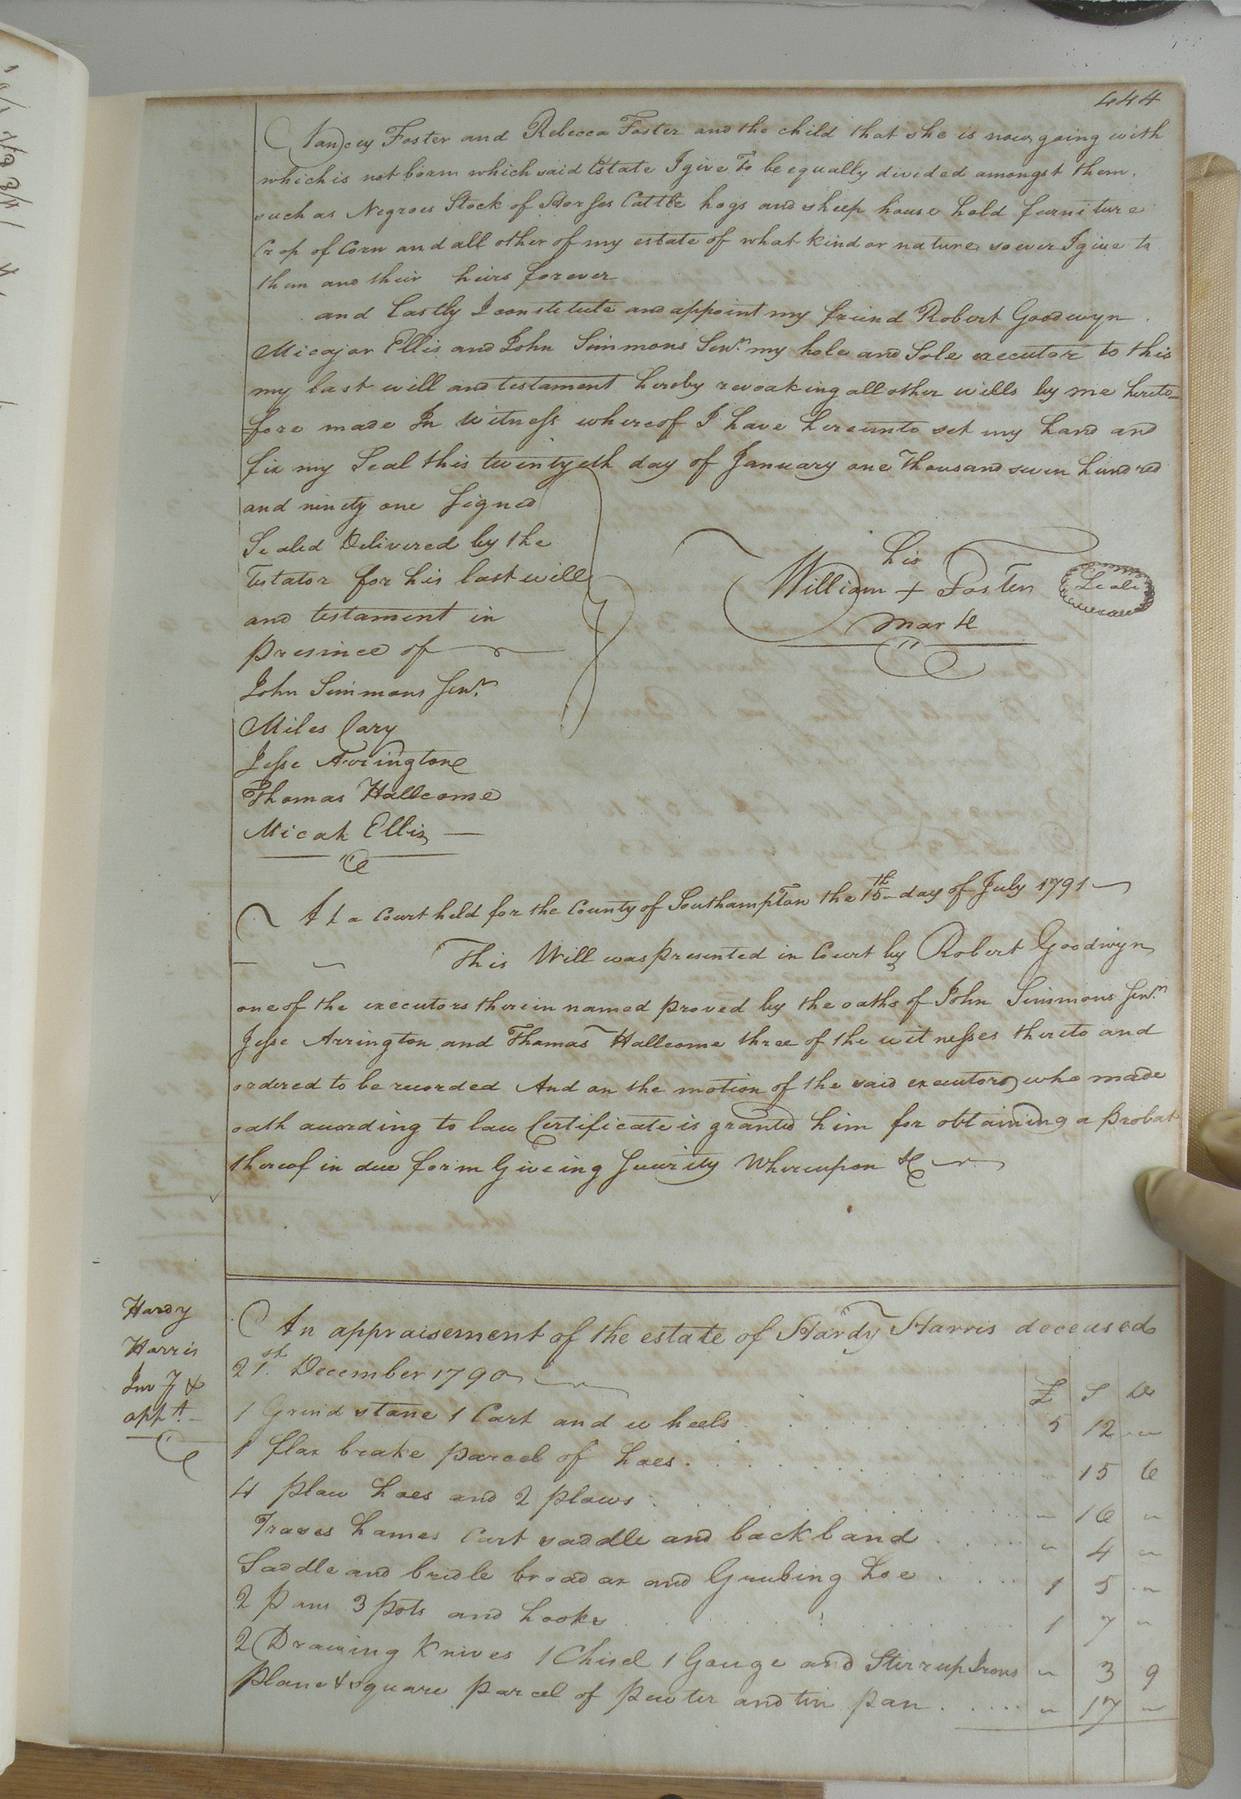 444
Nancey Foster and Rebecca Foster and the child that she is now going with
which is not born which said Estate I give To be equally divided amongst them.
such as Negroes Stock of Horses Cattle hogs and sheep house hold furniture
Crop of Corn and all other of my estate of what kind or nature so ever I give to
them and their heirs forever
and Lastly I constitute and appoint my friend Robert Goodwyn
Micajor Ellis and John Simmons Senr. my hole and Sole executor to this
my last will and testament hereby revoaking all other wills by me hereto=
fore made In Witness whereof I have hereunto set my hand and
fix my Seal this twentyeth day of January one Thousand seven hundred
and ninety one Signed
Sealed Delivered by the
Testator for his last will
and testament in
presince of
his
William + Foster Seal
mark
John Simmons Senr.
Miles Cary
Jesse Arrington
Thomas Hallcome
Micah Ellis
At a Court held for the County of Southampton the 15th day of July 1791
This Will was presented in Court by Robert Goodwyn
one of the executors therein named proved by the oaths of John Simmons Senr.
Jesse Arrington and Thomas Hallcome three of the witnesses thereto and
ordered to be recorded And on the motion of the said executors who made
oath according to law Certificate is granted him for obtaining a Probat
thereof in due form Giveing Security Whereupon &c
Hardy
Harris
Inv y &
appt.
An appraisement of the estate of Hardy Harris deceased
21st. December 1790
£ S D
1 Grind stone 1 Cart and wheels 5 12 "
1 flax brake parcel of hoes " 15 6
4 plow hoes and 2 plows " 16 "
Traves hames Cart saddle and backband " 4 "
Saddle and bridle broad ax and Grubing hoe 1 5 "
2 Pans 3 pots and hooks 1 7 "
2 Drawing Knives 1 Chisel 1 Gouge and Stirrup Irons " 3 9
plane & square parcel of pewter and tin pan " 17 "